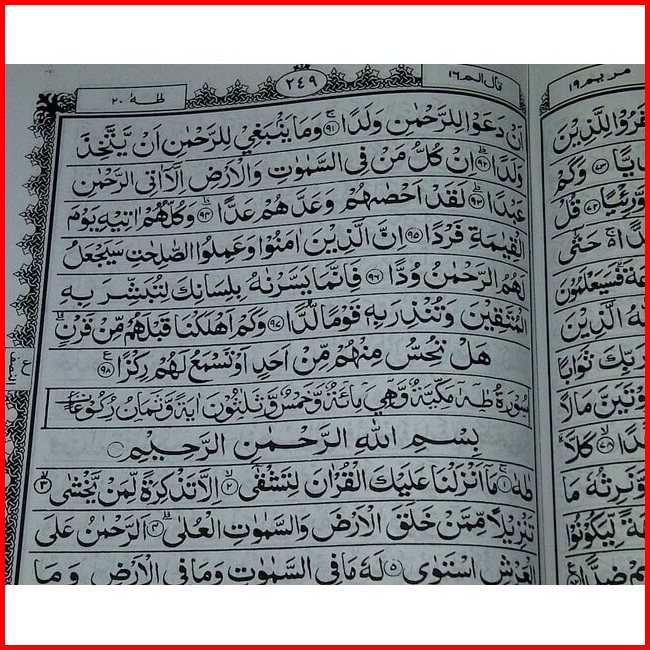 طٰهٰ ٢٠
٢٤٩
قال الم ١٦
مريم ١٩
اَنْ دَعَوْا لِلرَّحْمٰنِ وَلَدًا ۚ ٩١ وَمَا يَنْۢبَغِيْ لِلرَّحْمٰنِ اَنْ يَّتَّخِذَ
وَلَدًا ؕ ٩٢ اِنْ كُلُّ مَنْ فِى السَّمٰوٰتِ وَالْاَرْضِ اِلَّاۤ اٰتِى الرَّحْمٰنِ
عَبْدًا ؕ ٩٣ لَقَدْ اَحْصٰىهُمْ وَعَدَّهُمْ عَدًّا ؕ ٩٤ وَكُلُّهُمْ اٰتِيْهِ يَوْمَ
الْقِيٰمَةِ فَرْدًا ٩٥ اِنَّ الَّذِيْنَ اٰمَنُوْا وَعَمِلُوا الصّٰلِحٰتِ سَيَجْعَلُ
لَهُمُ الرَّحْمٰنُ وُدًّا ٩٦ فَاِنَّمَا يَسَّرْنٰهُ بِلِسَانِكَ لِتُبَشِّرَ بِهِ
الْمُتَّقِيْنَ وَتُنْذِرَ بِهٖ قَوْمًا لُّدًّا ٩٧ وَكَمْ اَهْلَكْنَا قَبْلَهُمْ مِّنْ قَرْنٍ ؕ
هَلْ تُحِسُّ مِنْهُمْ مِّنْ اَحَدٍ اَوْ تَسْمَعُ لَهُمْ رِكْزًا ٩٨
سُوْرَةُ طٰهٰ مَكِّيَّةٌ وَّهِيَ مِائَةٌ وَّخَمْسٌ وَّثَلٰثُوْنَ اٰيَةً وَّثَمَانُ رُكُوْعَاتٍ
بِسْمِ اللهِ الرَّحْمٰنِ الرَّحِيْمِ
طٰهٰ ١ مَاۤ اَنْزَلْنَا عَلَيْكَ الْقُرْاٰنَ لِتَشْقٰٓى ٢ اِلَّا تَذْكِرَةً لِّمَنْ يَّخْشٰى ٣
تَنْزِيْلًا مِّمَّنْ خَلَقَ الْاَرْضَ وَالسَّمٰوٰتِ الْعُلٰى ٤ اَلرَّحْمٰنُ عَلَى
الْعَرْشِ اسْتَوٰى ٥ لَهٗ مَا فِى السَّمٰوٰتِ وَمَا فِى الْاَرْضِ وَمَا
كَفَرُوْا لِلَّذِيْنَ
وَكَمْ
وَّرِئْيًا قُلْ
حَتّٰٓى
فَسَيَعْلَمُوْنَ
الَّذِيْنَ
رَبِّكَ ثَوَابًا
مَالًا
كَلَّا
وَّنَرِثُهٗ مَا
لِّيَكُوْنُوْا
ضِدًّا